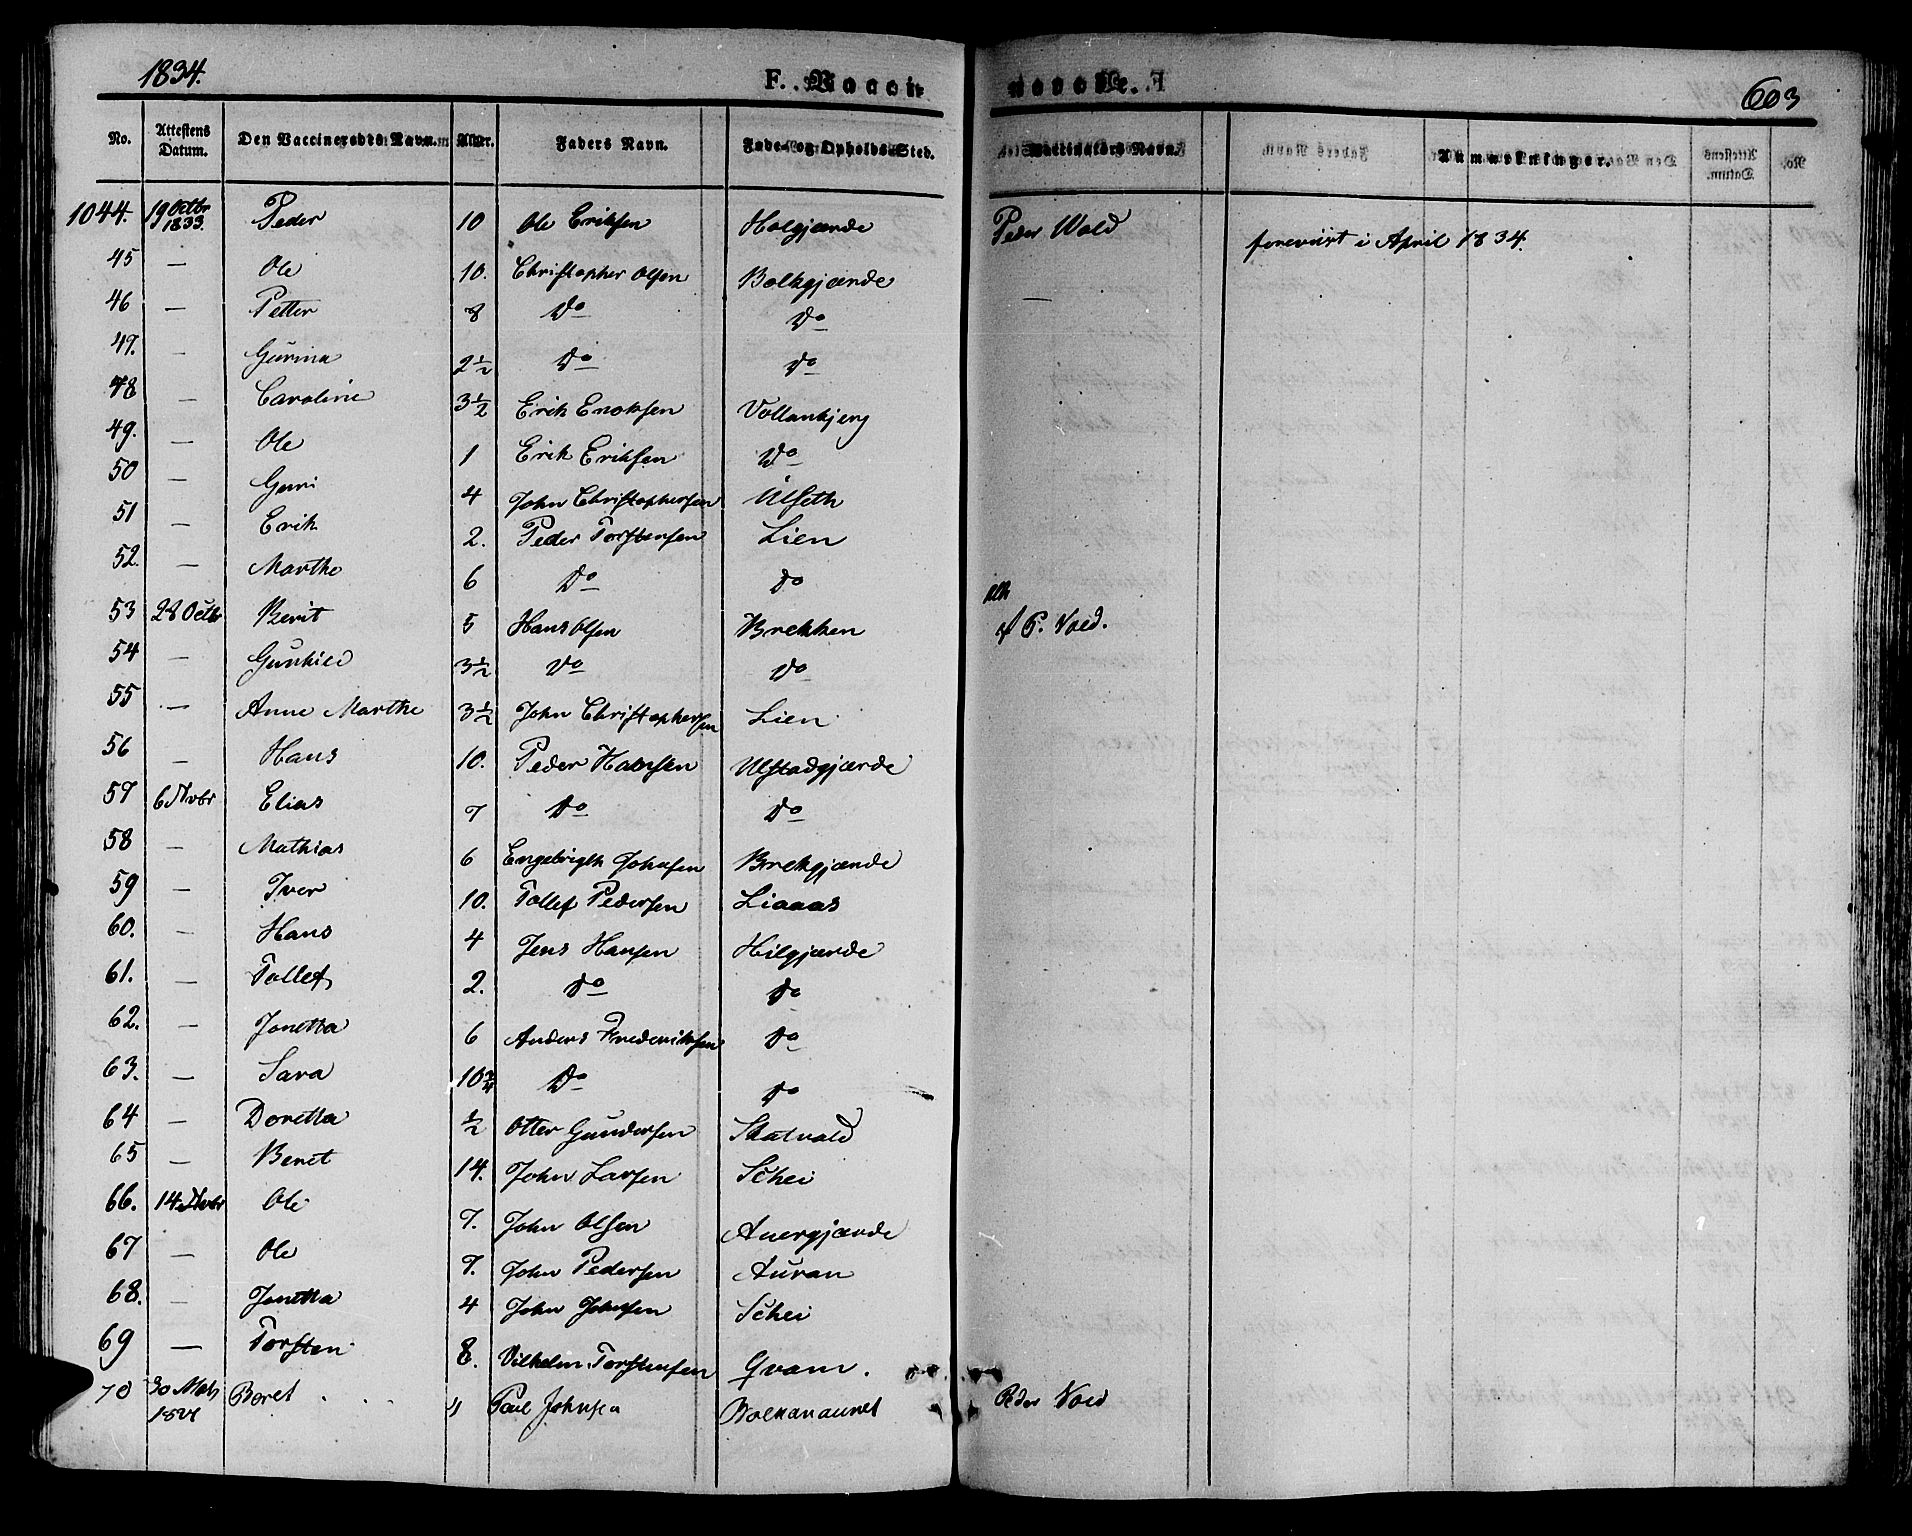 1834. F. Vaccin 603
No. Attestens Datum. Den Vaccineredes Navn. Alder. Faders Navn. Føde- og Opholds-Sted. Vaccinatørs Navn. Anmærkninger.
1044. 19 Octbr 1833. Peder 10 Ole Eriksen Holgjærde Peder Wold foreviist i April 1834.
45 — Ole 10. Christopher Olsen Bolkgjærde —
46 — Petter 8 Do Do
47. — Gurina 2½ Do Do
48 — Caroline 3½ Erik Enoksen Vollanbjerg
49. — Ole 1 Erik Eriksen Do
50 — Guri 4 John Christophersen Ulseth
51 — Erik 2. Peder Torstensen Lien
52. — Marthe 6 Do Do
53 28 Octbr Berit 5 Hans Olsen Brekken P. Vold.
54 — Gunhild 3½ Do Do
55 — Anne Marthe 3½ John Christophersen Lien
56 — Hans 10. Peder Hansen Ulstadgjærde
57 6 Nvbr Elias 7 Do Do
58 — Mathias 6 Engebrigth Johnsen Brekgjærde
59 — Iver 10. Tollef Pedersen Liaaas
60. — Hans 4 Jens Hansen Hilgjærde
61. — Tollef 2. Do Do
62. — Jonetta 6 Anders Frederiksen Do
63. — Sara 10 Do Do
64 — Doretta ½ Otter Gundersen Skatvold
65 — Beret 14. John Larsen Schei
66. 14 Nvbr Ole 7. John Olsen Auergjærde
67 — Ole 7. John Pedersen Auran
68. — Jonetta 4 John Johnsen Schei
69 — Torsten 8. Vilhelm Torstensen Qvam.
70 30 Beret 4 Paul Johnsen Bolkanaunet Peder Vold